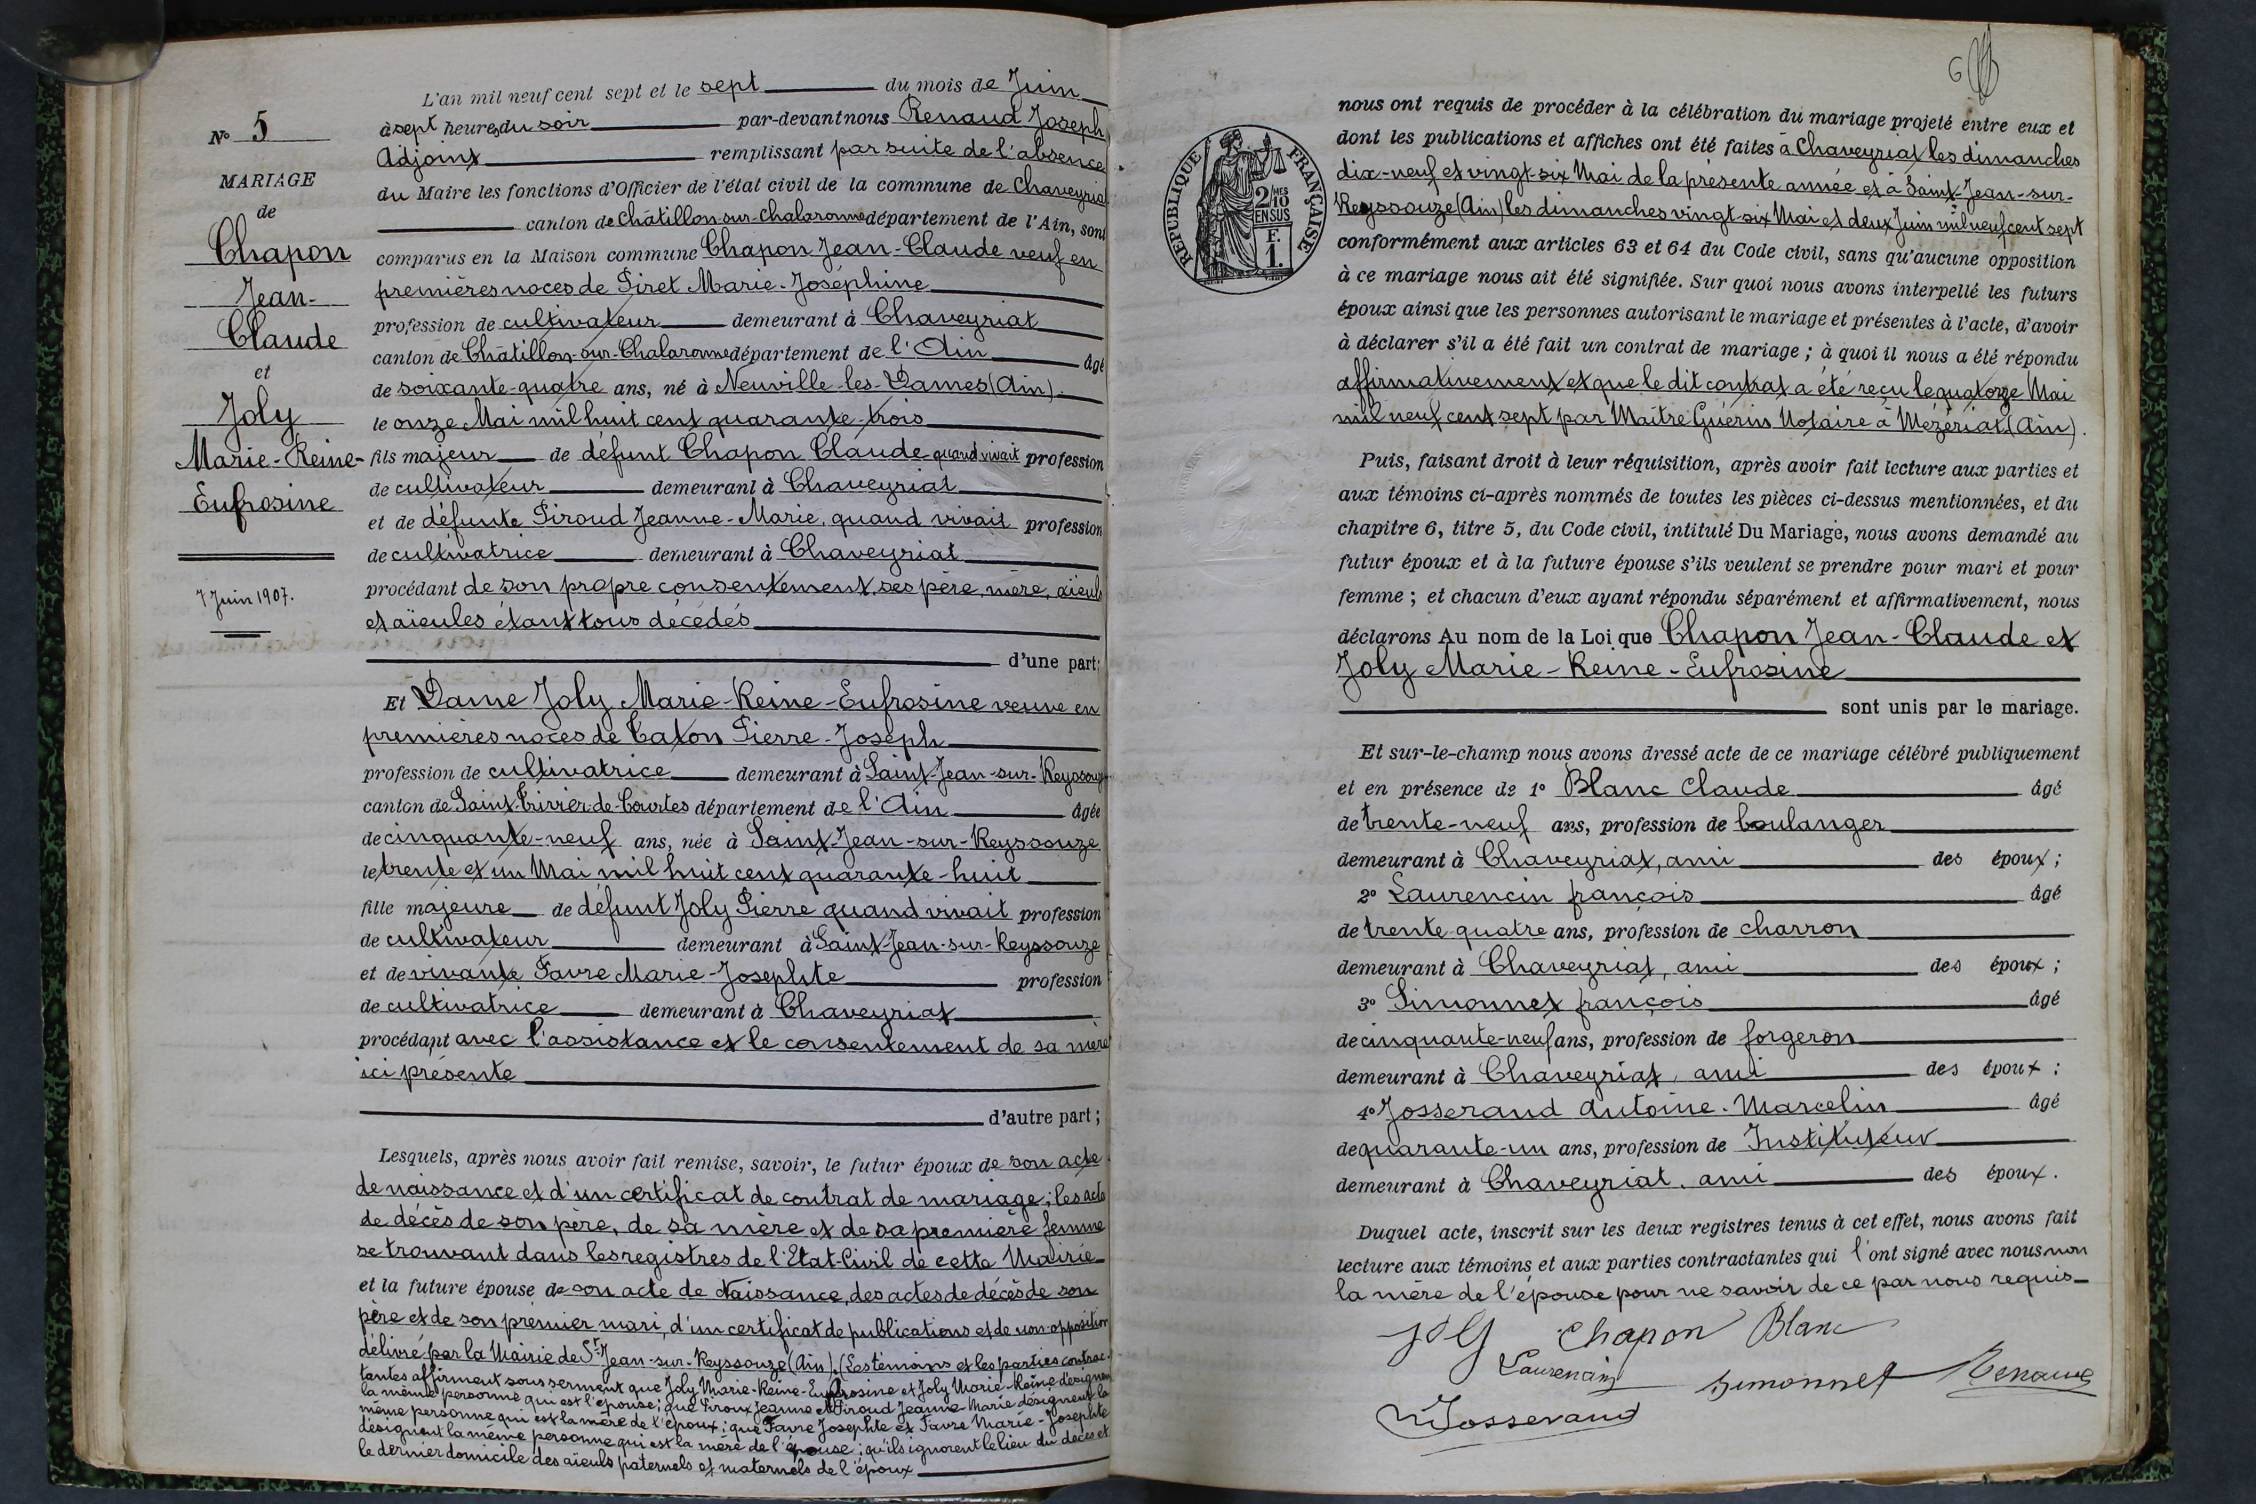 N° 5
MARIAGE
de
Chapon
Jean-
Claude
et
Joly
Marie-Reine-
Eufrosine
7 Juin 1907.
L'an mil neuf cent sept et le sept du mois de Juin
à sept heures du soir par-devant nous Renaud Joseph
Adjoint remplissant par suite de l'absence
du Maire les fonctions d'Officier de l'état civil de la commune de Chaveyriat
canton de Châtillon-sur-Chalaronne département de l'Ain, sont
comparus en la Maison commune Chapon Jean-Claude veuf en
premières noces de Piret Marie-Joséphine
profession de cultivateur demeurant à Chaveyriat
canton de Châtillon-sur-Chalaronne département de l'Ain âgé
de soixante-quatre ans, né à Neuville-les-Dames (Ain).
le onze Mai mil huit cent quarante-trois
fils majeur de défunt Chapon Claude quand vivait profession
de cultivateur demeurant à Chaveyriat
et de défunte Piroud Jeanne-Marie, quand vivait profession
de cultivatrice demeurant à Chaveyriat
procédant de son propre consentement, ses père, mère, aïeuls
et aïeules étant tous décédés
d'une part;
Et Dame Joly Marie-Reine-Eufrosine veuve en
premières noces de Caton Pierre-Joseph
profession de cultivatrice demeurant à Saint-Jean-sur-Reyssouze
canton de Saint-Trivier-de-Courtes département de l'Ain âgée
de cinquante-neuf ans, née à Saint-Jean-sur-Reyssouze
le trente et un Mai mil huit cent quarante-huit
fille majeure de défunt Joly Pierre quand vivait profession
de cultivateur demeurant à Saint-Jean-sur-Reyssouze
et de vivante Favre Marie-Josephte profession
de cultivatrice demeurant à Chaveyriat
procédant avec l'assistance et le consentement de sa mère
ici présente
d'autre part;
Lesquels, après nous avoir fait remise, savoir, le futur époux de son acte
de naissance et d'un certificat de contrat de mariage; les actes
de décès de son père, de sa mère et de sa première femme
se trouvant dans les registres de l'Etat-Civil de cette Mairie
et la future épouse de son acte de Naissance, des actes de décès de son
père et de son premier mari, d'un certificat de publications et de non-opposition
délivré par la Mairie de St-Jean-sur-Reyssouze (Ain). (Les témoins et les parties contrac-
tantes affirment sous serment que Joly Marie-Reine-Eufrosine et Joly Marie-Reine désignent
la même personne qui est l'épouse; que Piroux Jeanne et Piroud Jeanne-Marie désignent la
même personne qui est la mère de l'époux; que Favre Josephte et Favre Marie-Josephte
désignent la même personne qui est la mère de l'épouse; qu'ils ignorent le lieu du décès et
le dernier domicile des aïeuls paternels et maternels de l'époux
6
RÉPUBLIQUE FRANÇAISE
2/10 MES
EN SUS
F.
1.
nous ont requis de procéder à la célébration du mariage projeté entre eux et
dont les publications et affiches ont été faites à Chaveyriat les dimanches
dix-neuf et vingt-six Mai de la présente année et à Saint-Jean-sur-
Reyssouze (Ain) les dimanches vingt-six Mai et deux Juin mil neuf cent sept
conformément aux articles 63 et 64 du Code civil, sans qu'aucune opposition
à ce mariage nous ait été signifiée. Sur quoi nous avons interpellé les futurs
époux ainsi que les personnes autorisant le mariage et présentes à l'acte, d'avoir
à déclarer s'il a été fait un contrat de mariage; à quoi il nous a été répondu
affirmativement et que le dit contrat a été reçu le quatorze Mai
mil neuf cent sept par Maître Guérin Notaire à Mézériat (Ain).
Puis, faisant droit à leur réquisition, après avoir fait lecture aux parties et
aux témoins ci-après nommés de toutes les pièces ci-dessus mentionnées, et du
chapitre 6, titre 5, du Code civil, intitulé Du Mariage, nous avons demandé au
futur époux et à la future épouse s'ils veulent se prendre pour mari et pour
femme; et chacun d'eux ayant répondu séparément et affirmativement, nous
déclarons Au nom de la Loi que Chapon Jean-Claude et
Joly Marie-Reine-Eufrosine
sont unis par le mariage.
Et sur-le-champ nous avons dressé acte de ce mariage célébré publiquement
et en présence de 1° Blanc Claude âgé
de trente-neuf ans, profession de boulanger
demeurant à Chaveyriat, ami des époux;
2° Laurencin françois âgé
de trente-quatre ans, profession de charron
demeurant à Chaveyriat, ami des époux;
3° Simonnet françois âgé
de cinquante-neuf ans, profession de forgeron
demeurant à Chaveyriat, ami des époux;
4° Josserand Antoine-Marcelin âgé
de quarante-un ans, profession de Instituteur
demeurant à Chaveyriat, ami des époux.
Duquel acte, inscrit sur les deux registres tenus à cet effet, nous avons fait
lecture aux témoins et aux parties contractantes qui l'ont signé avec nous non
la mère de l'épouse pour ne savoir de ce par nous requis
Joly Chapon Blanc
Laurencin Simonnet Renaud
Josserand